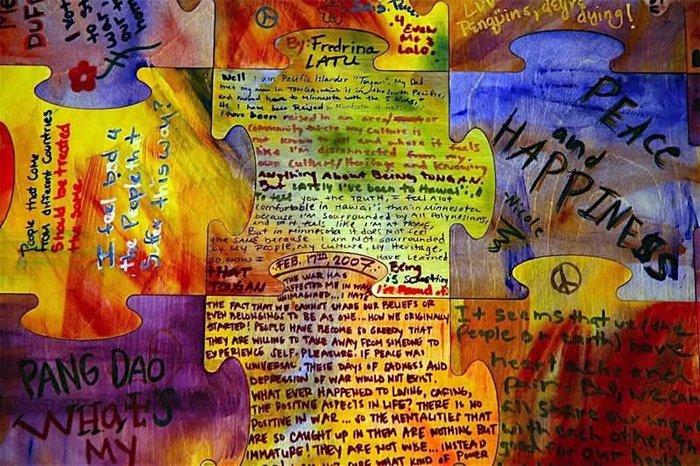 MEE
DUFF
4
Even
Me &
Lalo!
LUV
Penguins, deyre
dying!
By: Fredrina
LATU
Well I am Pacific Islander "Tongan". My Dad
met my mom in TONGA, which is in the South Pacific,
and moved here to Minnesota with the 5 kids.
I have been Raised in Minnesota
I have been raised in an area
community where my culture is
not known and where it feels
like I'm disconnected from my
own Culture/Heritage and knowing
anything About Being TONGAN
But lATely I've been to HAwAii...!
To tell you the TRUTH, I feel Alot
comfortable in Hawai'i than in Minnesota
because I'm surrounded by All Polynesians,
and only feel like I'm at HOME,
But in Minnesota it does not feel
the SAME because I am NOT surrounded
by My People, My culture, My Heritage,
So NOW I have Learned
tHAt Being
TONGAN is something
I'm Proud of.
People that come
From different Countries
Should be treated
the same.
I feel bad 4
the People that
this way?
PEACE
and
HAPPINESS
Nicole
FEB. 17TH 2007
THE WAR HAS
AFFECTED ME IN WAYS
UNIMAGINED... I HATE
THE FACT THAT WE CANNOT SHARE OUR BELIEFS OR
EVEN BELONGINGS TO BE AS ONE... HOW WE ORIGINALLY
STARTED! PEOPLE HAVE BECOME SO GREEDY THAT
THEY ARE WILLING TO TAKE AWAY FROM SOMEONE TO
EXPERIENCE SELF-PLEASURE. IF PEACE WAS
UNIVERSAL, THESE DAYS OF SADNESS AND
DEPRESSION OF WAR WOULD NOT EXIST.
WHAT EVER HAPPENED TO LOVING, CARING,
THE POSITIVE ASPECTS IN LIFE? THERE IS NO
POSITIVE IN WAR... SO THE MENTALITIES THAT
ARE SO CAUGHT UP IN THEM ARE NOTHING BUT
IMMATURE! THEY ARE NOT WISE... INSTEAD
NOT SURE WHAT KIND OF POWER
PANG DAO
WHAT'S
MY
It seems that we (the
People on earth) have
heart ache and
pain. But, we can
all share our
with each other